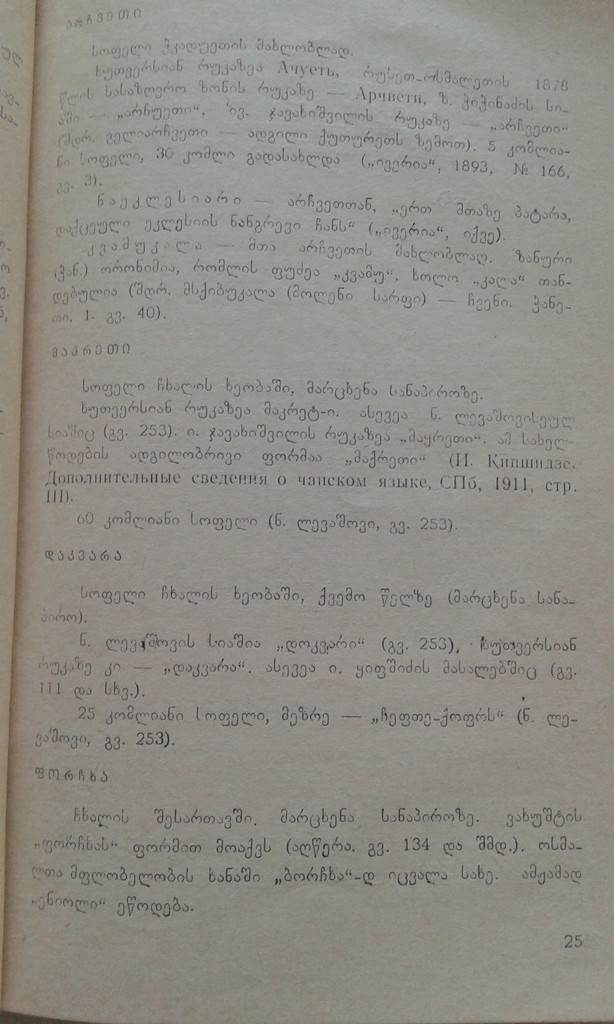 არჩვეთი
სოფელი ჭკადუეთის მახლობლად.
ხუთვერსიან რუკაზეა Ачуеть, რუსეთ-ოსმალეთის 1878
წლის სასაზღვრო ზონის რუკაზე — Арчвети, ზ. ჭიჭინაძის სი-
აში — „არჩუეთი“, ივ. ჯავახიშვილის რუკაზე — „არჩვეთი“
(შდრ. გელიარჩვეთი — ადგილი ქუთურეთს ზემოთ). 5 კომლია-
ნი სოფელი, 30 კომლი გადასახლდა („ივერია“, 1893, № 166,
გვ. 3).
ნაეკლესიარი — არჩვეთთან, „ერთ მთაზე პატარა,
დაქცეული ეკლესიის ნანგრევი ჩანს“ („ივერია“, იქვე).
კვამუკალა — მთა არჩვეთის მახლობლად. ზანური
(ჭან.) ორონიმია, რომლის ფუძეა „კვამუ“, ხოლო „კალა“ თან-
დებულია (შდრ. მსქიბუკალა (მოლენი სარფი) — ჩვენი. ჭანე-
თი, 1. გვ. 40).
მაკრეთი
სოფელი ჩხალის ხეობაში, მარცხენა სანაპიროზე.
ხუთვერსიან რუკაზეა მაკრეტ-ი. ასევეა ნ. ლევაშოვისეულ
სიაშიც (გვ. 253). ი. ჯავახიშვილის რუკაზეა „მაყრეთი“. ამ სახელ-
წოდების ადგილობრივი ფორმაა „მაქრეთი“ (И. Кипшидзе.
Дополнительные сведения о чанском языке, СПб, 1911, стр.
III).
60 კომლიანი სოფელი (ნ. ლევაშოვი, გვ. 253).
დაკვარა
სოფელი ჩხალის ხეობაში, ქვემო წელზე (მარცხენა სანა-
პირო).
ნ. ლევაშოვის სიაშია „დოკვარი“ (გვ. 253), ხუთვერსიან
რუკაზე კი — „დაკვარა“. ასევეა ი. ყიფშიძის მასალებშიც (გვ.
111 და სხვ.).
25 კომლიანი სოფელი, მეზრე — „ჩეფთე-ქოფრს“ (ნ. ლე-
ვაშოვი, გვ. 253).
ფორჩხა
ჩხალის შესართავში. მარცხენა სანაპიროზე. ვახუშტის
„ფორჩხას“ ფორმით მოაქვს (აღწერა. გვ. 134 და შმდ.). ოსმა-
ლთა მფლობელობის ხანაში „ბორჩხა“-დ იცვალა სახე. ამჟამად
„ენიოლი“ ეწოდება.
25